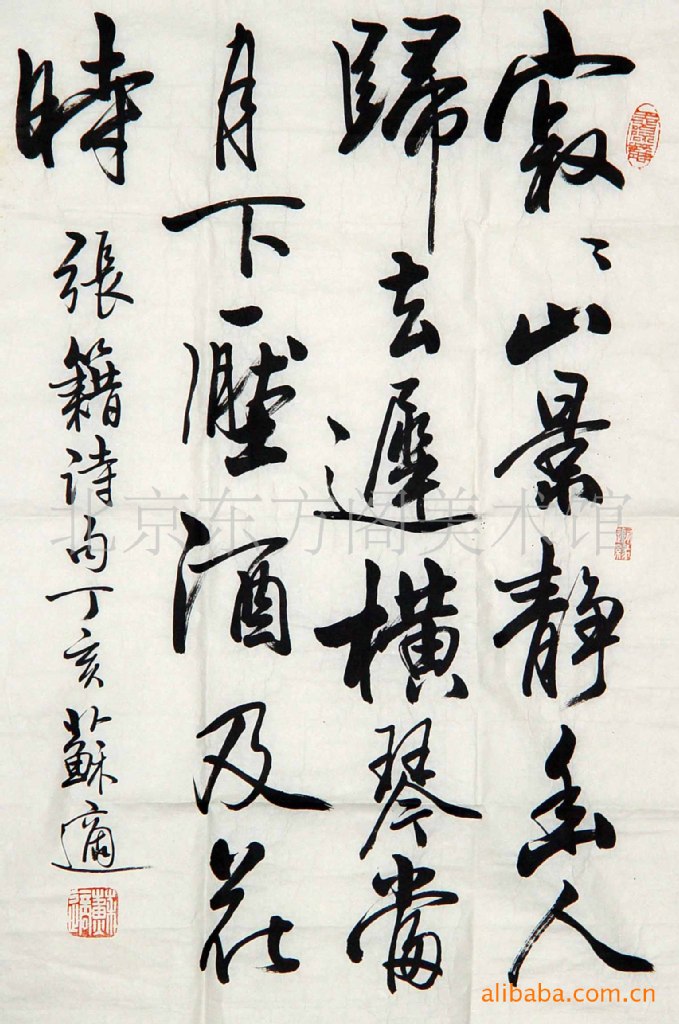 寂〻山景靜幽人
歸去遲橫琴當
月下壓酒及花
時
張籍詩句丁亥蘇適
北京东方阁美术馆
alibaba.com.cn